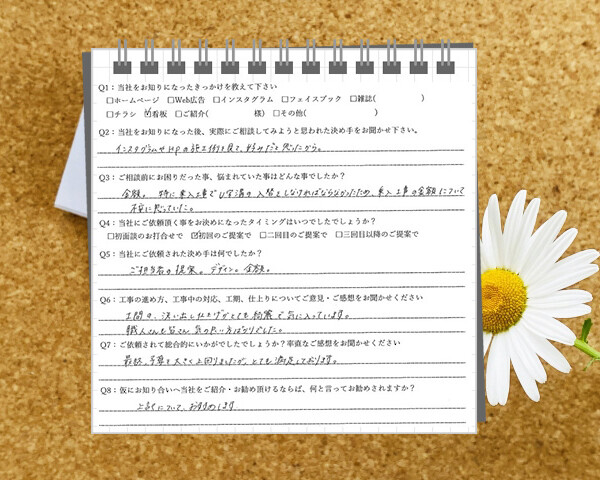 Q1：当社をお知りになったきっかけを教えて下さい
□ホームページ □Web広告 □インスタグラム □フェイスブック □雑誌(　　　　)
□チラシ ☑看板 □ご紹介(　　　　様) □その他(　　　　　　)
Q2：当社をお知りになった後、実際にご相談してみようと思われた決め手をお聞かせ下さい。
インスタグラムやHPの施工例を見て、好みだと思ったから。
Q3：ご相談前にお困りだった事、悩まれていた事はどんな事でしたか？
金額。特に乗入工事でU字溝の入替えしなければならなかったため、乗入工事の金額について
不安に思っていた。
Q4：当社にご依頼頂く事をお決めになったタイミングはいつでしたでしょうか？
□初面談のお打合せで ☑初回のご提案で □二回目のご提案で □三回目以降のご提案で
Q5：当社にご依頼された決め手は何でしたか？
ご担当者の提案。デザイン。金額。
Q6：工事の進め方、工事中の対応、工期、仕上りについてご意見・ご感想をお聞かせください
土間の洗い出し仕上げがとても綺麗で気に入っています。
職人さんも皆さん気の良い方ばかりでした。
Q7：ご依頼されて総合的にいかがでしたでしょうか？率直なご感想をお聞かせください
最終、予算を大きく上回りましたが、とても満足しております。
Q8：仮にお知り合いへ当社をご紹介・お勧め頂けるならば、何と言ってお勧めされますか？
上記について、おすすめします